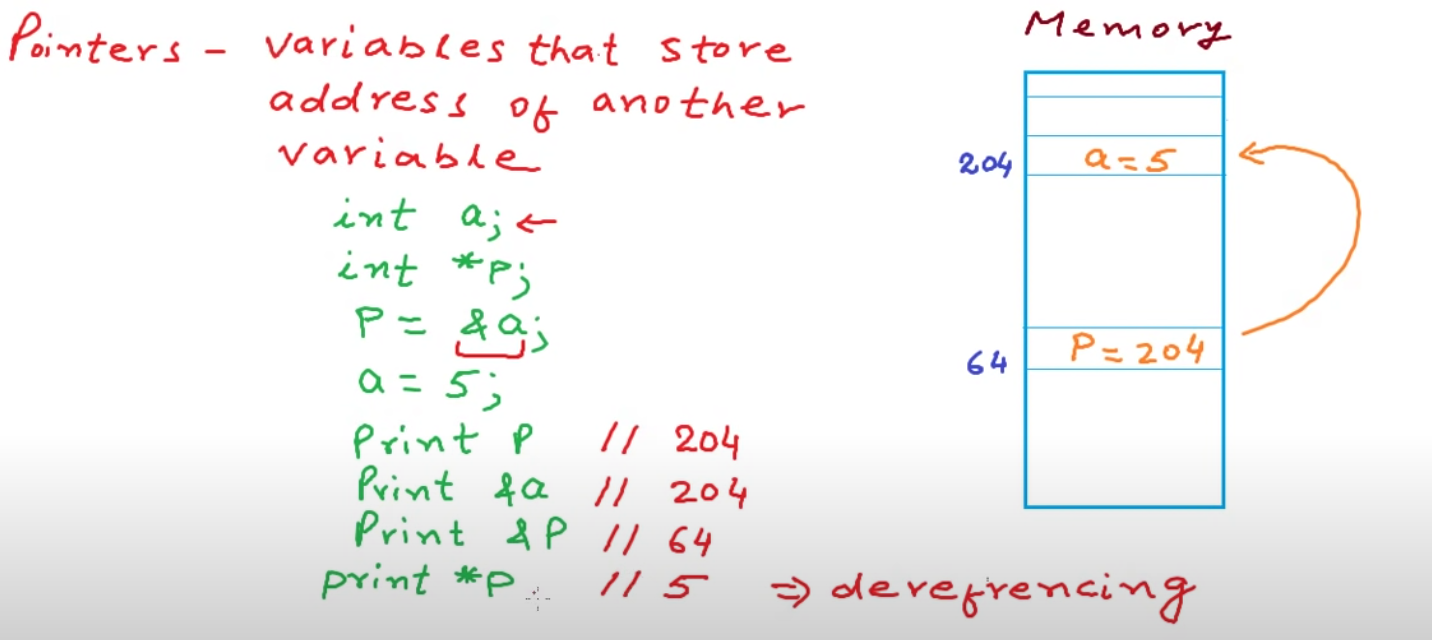 Pointers - variables that store
address of another
variable
int a; ←
int *p;
P = &a;
a = 5;
Print P // 204
Print &a // 204
Print &P // 64
print *p // 5 => derefrencing
Memory
204 a = 5
64 P = 204